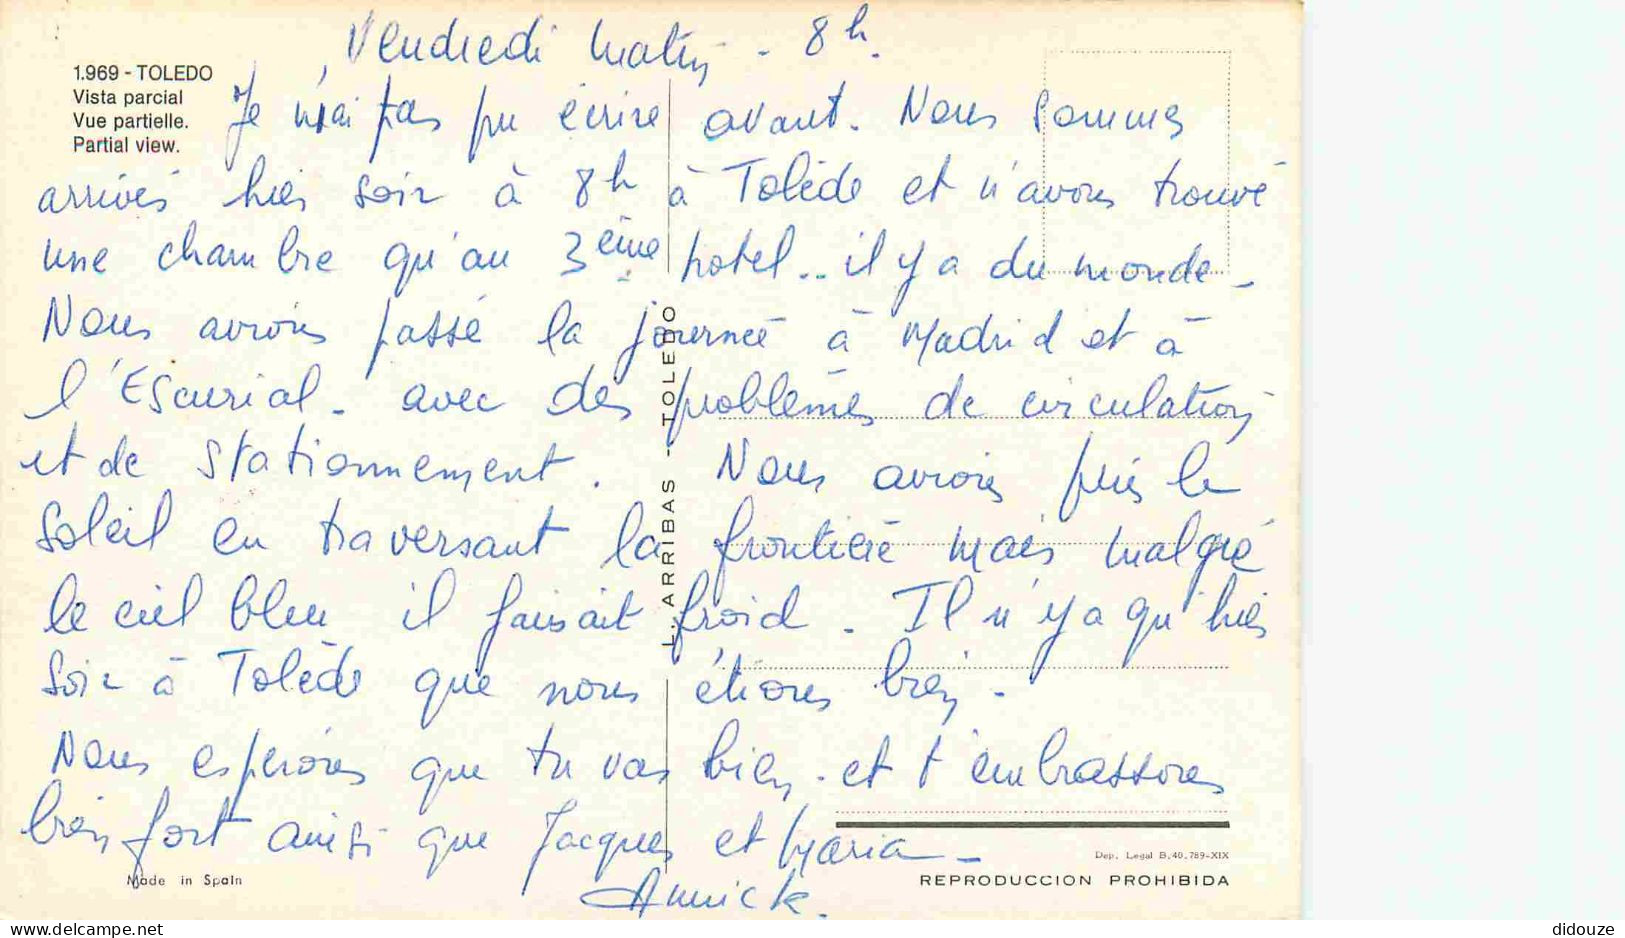 Vendredi matin - 8h.
1.969 - TOLEDO
Vista parcial
Vue partielle.
Partial view.
Je n'ai pas pu écrire avant. Nous sommes
arrivés hier soir à 8h à Tolède et n'avons trouvé
une chambre qu'au 3ème hotel.. il y a du monde -
Nous avions passé la journée à Madrid et à
l'Escurial - avec des problèmes de circulation
et de stationnement. Nous avions pris le
soleil en traversant la frontière mais malgré
le ciel bleu il faisait froid - Il n'y a qu'hier
soir à Tolède que nous étions bien -
Nous espérons que tu vas bien - et t'embrassons
bien fort ainsi que Jacques et Maria -
Annick.
L. ARRIBAS - TOLEDO
Made in Spain
Dep. Legal B.40.789-XIX
REPRODUCCION PROHIBIDA
delcampe.net
didouze